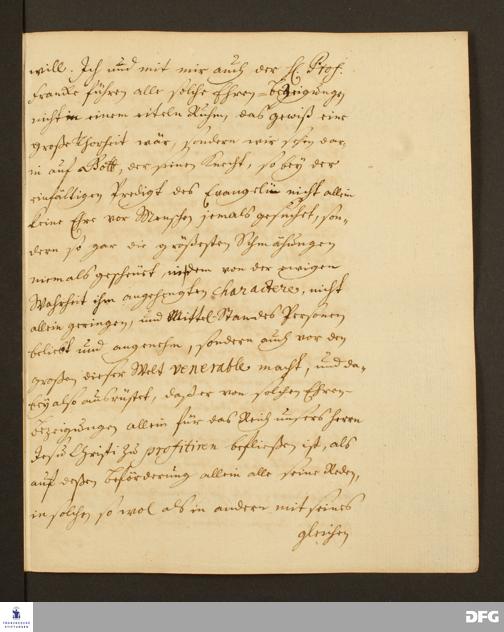 will. Ich und mit mir auch der H. Prof.
Francke führen alle solche Ehren-Bezeigungen
nicht zu einem eiteln Ruhm, das gewiß eine
große Thorheit wär, sondern wir sehen dar,
in auf Gott, der seinen Knecht, so bey der
einfältigen Predigt des Evangelii nicht allein
keine Ehre vor Menschen jemals gesuchet, son-
dern so gar die größesten Schmähungen
niemals gescheuet, indem von der ewigen
Wahrheit ihm angehengten charactere, nicht
allein geringen, und Mittel-Standes Personen
beliebt und angenehm, sondern auch vor den
großen dieser Welt venerable macht, und da-
bey also ausrüstet, daß er von solchen Ehren-
Bezeigungen allein für das Reich unsers Herrn
Jesu Christi zu profitiren befließen ist, als
auf deßen Beförderung allein alle seine Reden,
in solchen so wol als in andern mit seines
gleichen
FRANCKESCHE STIFTUNGEN
DFG